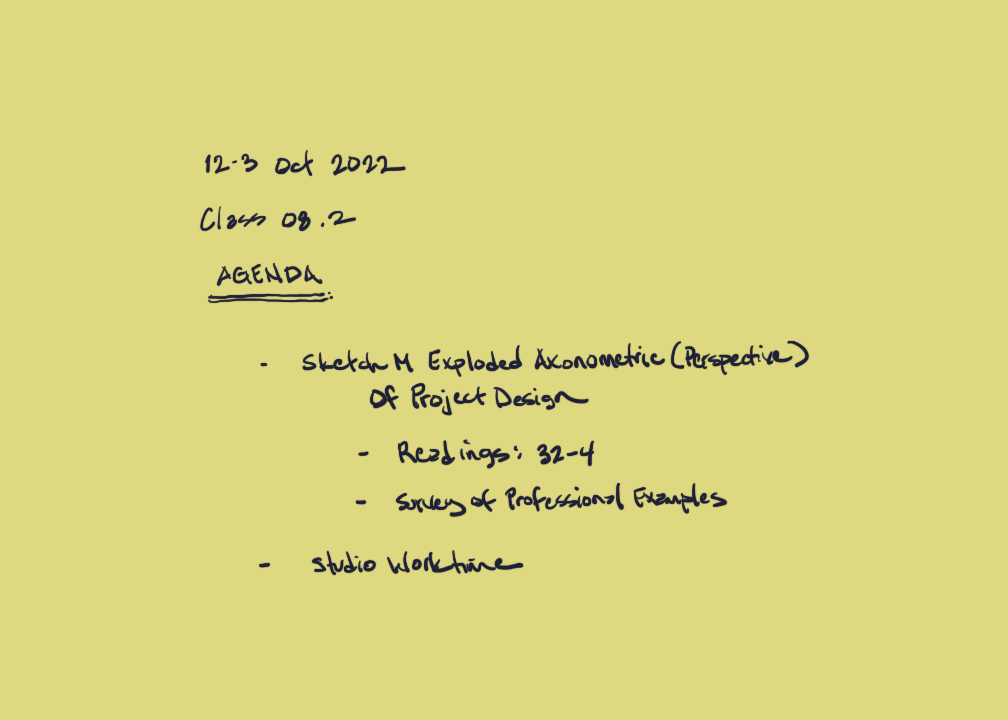 12-3 Oct 2022
Class 08.2
AGENDA
- Sketch M Exploded Axonometric (Perspective)
Of Project Design
- Readings: 32-4
- Survey of Professional Examples
- Studio Worktime